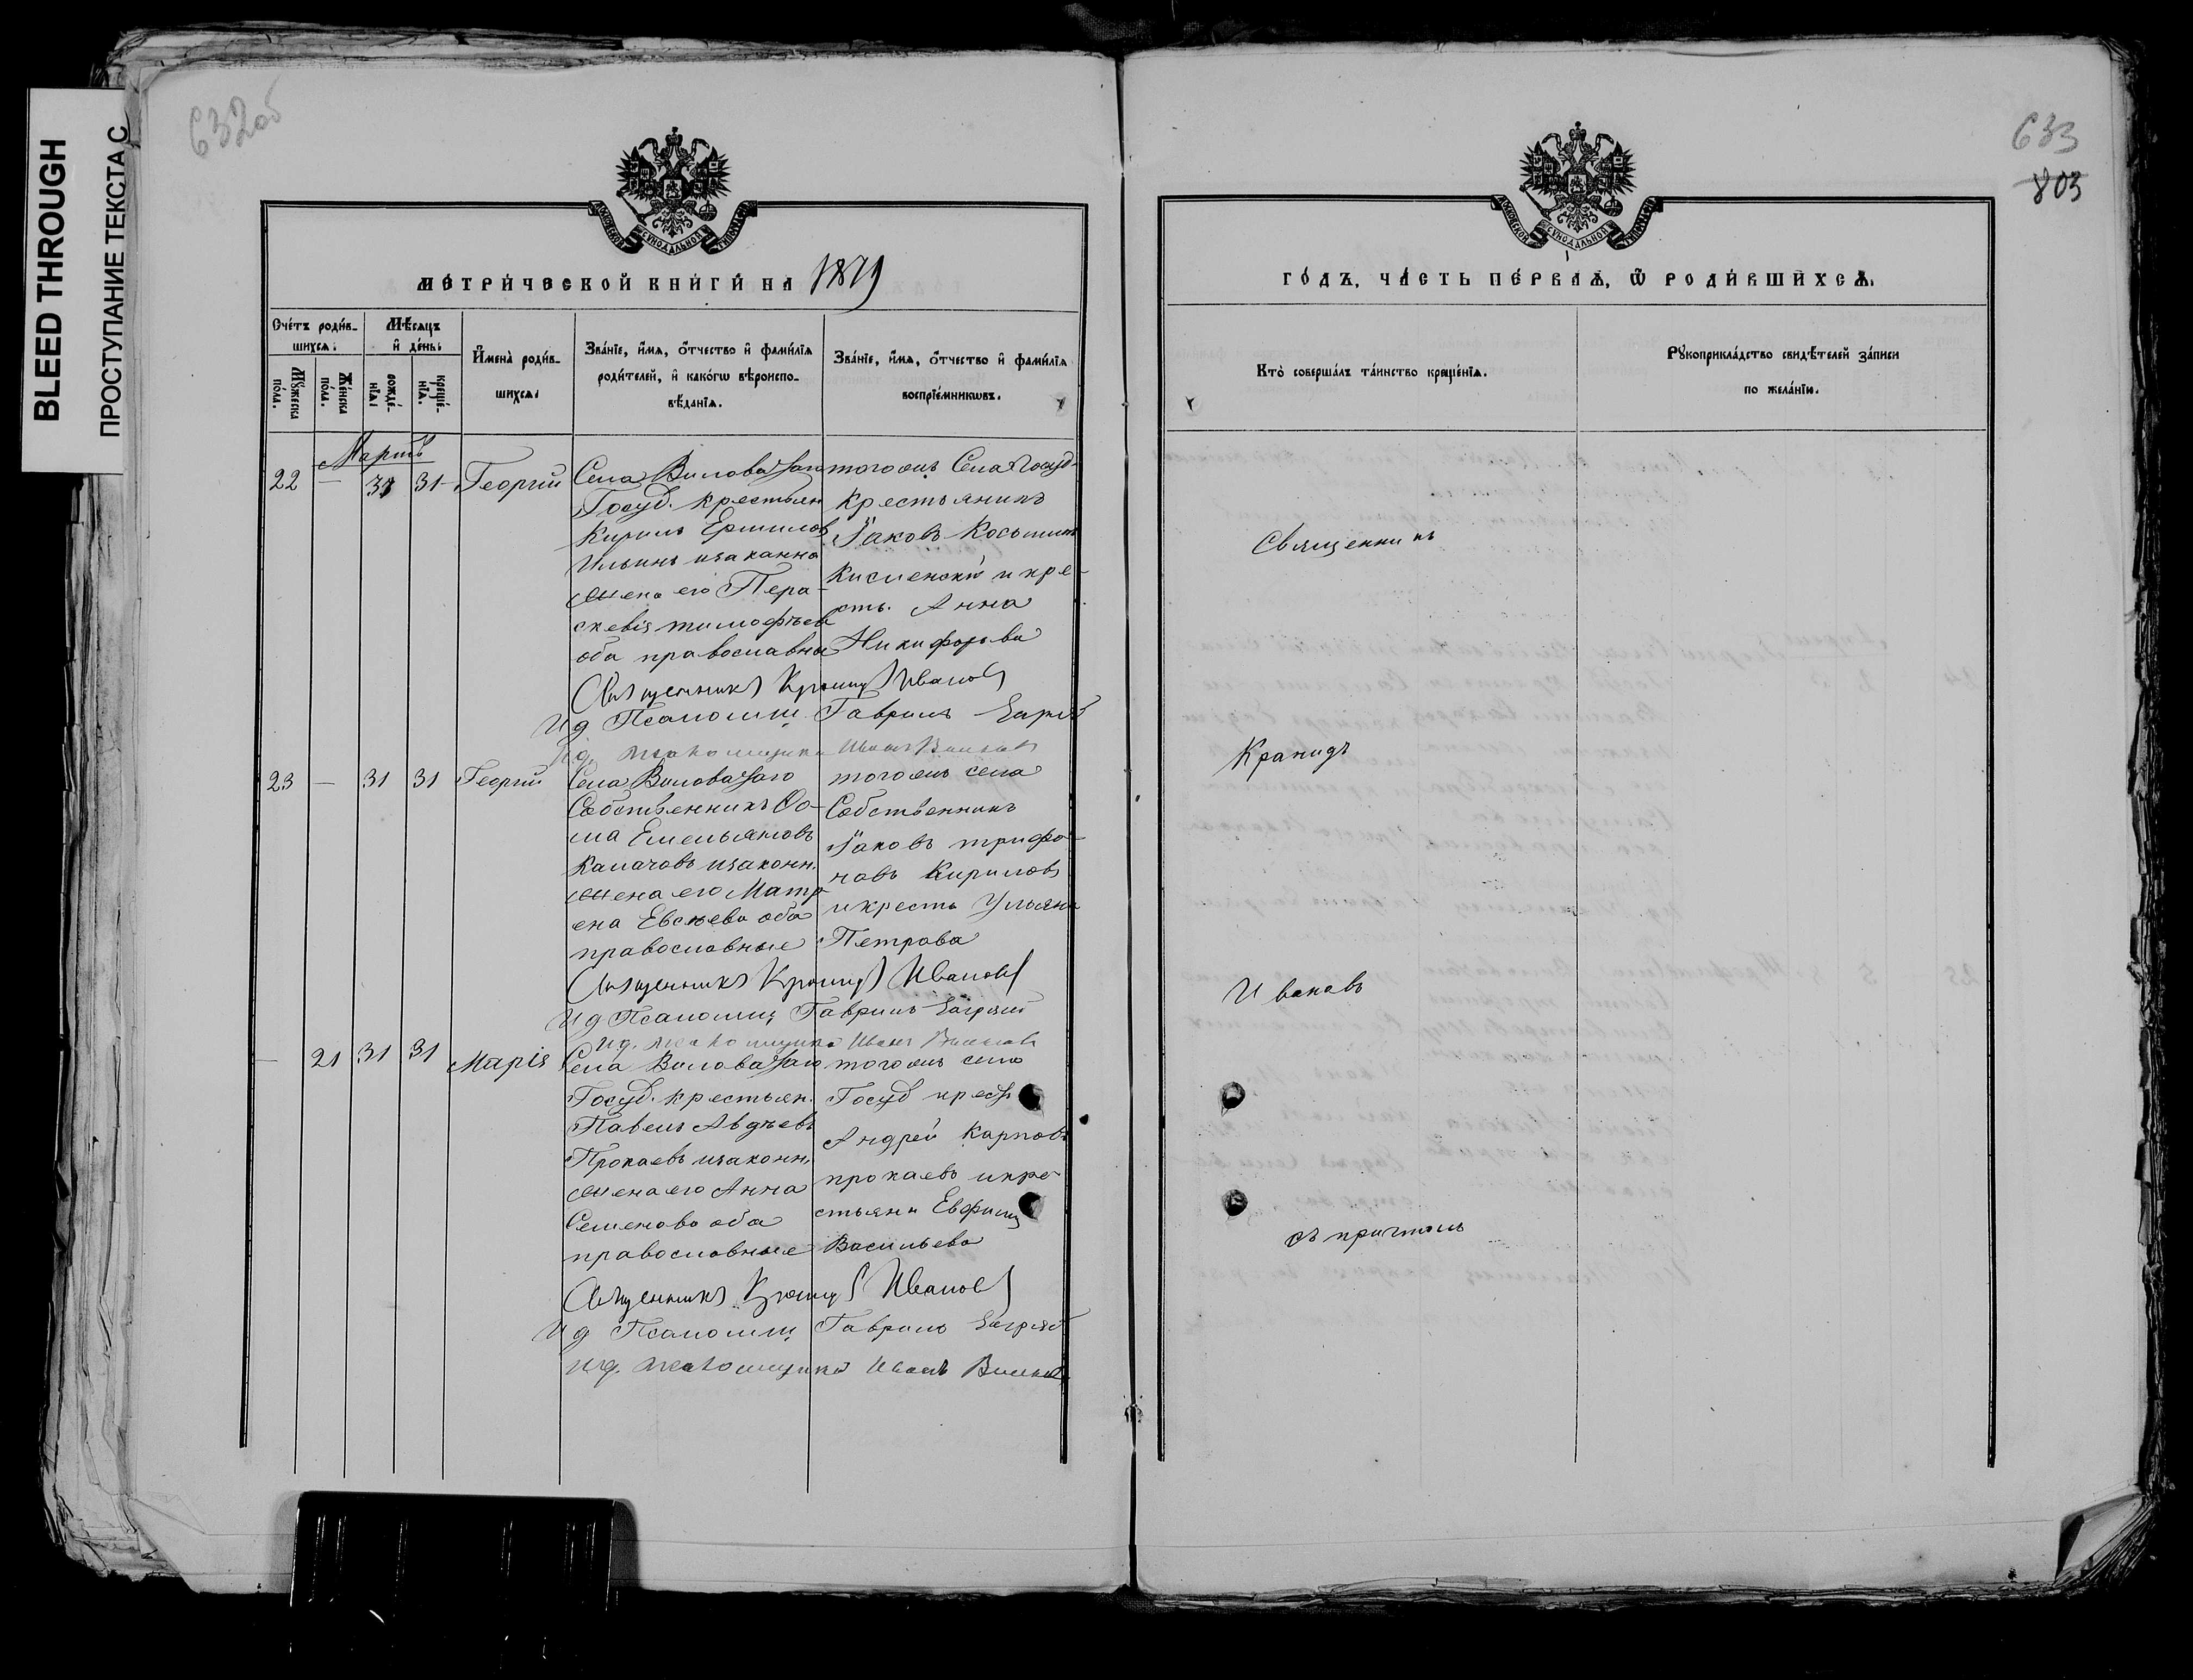 BLEED THROUGH
ПРОСТУПАНИЕ ТЕКСТА С
632об
633
803
МОСКОВСКОЙ СѴНОДАЛЬНОЙ ТИПОГРАФІИ
МЕТРИ́ЧЕСКОЙ КНИ́ГИ НА 1879
Сче́тъ роди́в-
шихся:
Мѣ́сяцъ
и҆ де́нь:
И҆мена̀ роди́в-
шихся:
Зва́нїе, и҆́мя, ѻ҆́тчество и҆ фами́лїя
роди́телей, и҆ како́гѡ вѣроиспо-
вѣ́данїя.
Зва́нїе, и҆́мя, ѻ҆́тчество и҆ фами́лїя
воспрїе́мникѡвъ.
Мꙋ́жеска
по́ла.
Же́нска
по́ла.
рожде́-
нїя:
креще́-
нїя.
Мартъ
22 — 31 31 Георгий
Села Виловатаго
Госуд. крестьян
Кирилъ Ермилов
Ильинъ изаконна
жена его Пера-
скевія тимофѣев
оба православны
тогожъ Села Госуд-
Крестьянинъ
Іаковъ Косьмин
и кре-
сть. Анна
Никифорова
Священникъ Иванов
Ид Псаломщ Гаврилъ
Ид. псаломщика Иванъ
23 — 31 31 Георгий
Села Виловатаго
Собственникъ Ѳо-
ма Емельяновъ
Калачовъ изаконн.
жена его Матр
ена Евсѣева оба
православные
тогожъ села
Собственникъ
Іаковъ трифо-
новъ Кирилов
и кресть Ульяна
Петрова
Священникъ Иванов
Ид Псаломщ Гаврилъ
Ид. псаломщика Иванъ
— 21 31 31 Марія
Села Виловатаго
Госуд. крестьян.
Павелъ Авдѣевъ
Прокаевъ изаконн.
жена его Анна
Семенова оба
православные
тогожъ села
Госуд крест
Андрей Карповъ
прокаевъ и кре-
стьянк Евфим
Васильева
Священникъ Иванов
Ид Псаломщ Гаврилъ
Ид. псаломщика Иванъ
МОСКОВСКОЙ СѴНОДАЛЬНОЙ ТИПОГРАФІИ
ГО́ДЪ, ЧА́СТЬ ПЕ́РВАЯ, Ѽ РОДИ́ВШИХСЯ.
Кто̀ соверша́лъ та́инство креще́нїя.
Рꙋкоприкла́дство свидѣ́телей за́писи
по жела́нїю.
Священникъ
Кранидъ
Ивановъ
съ причтомъ